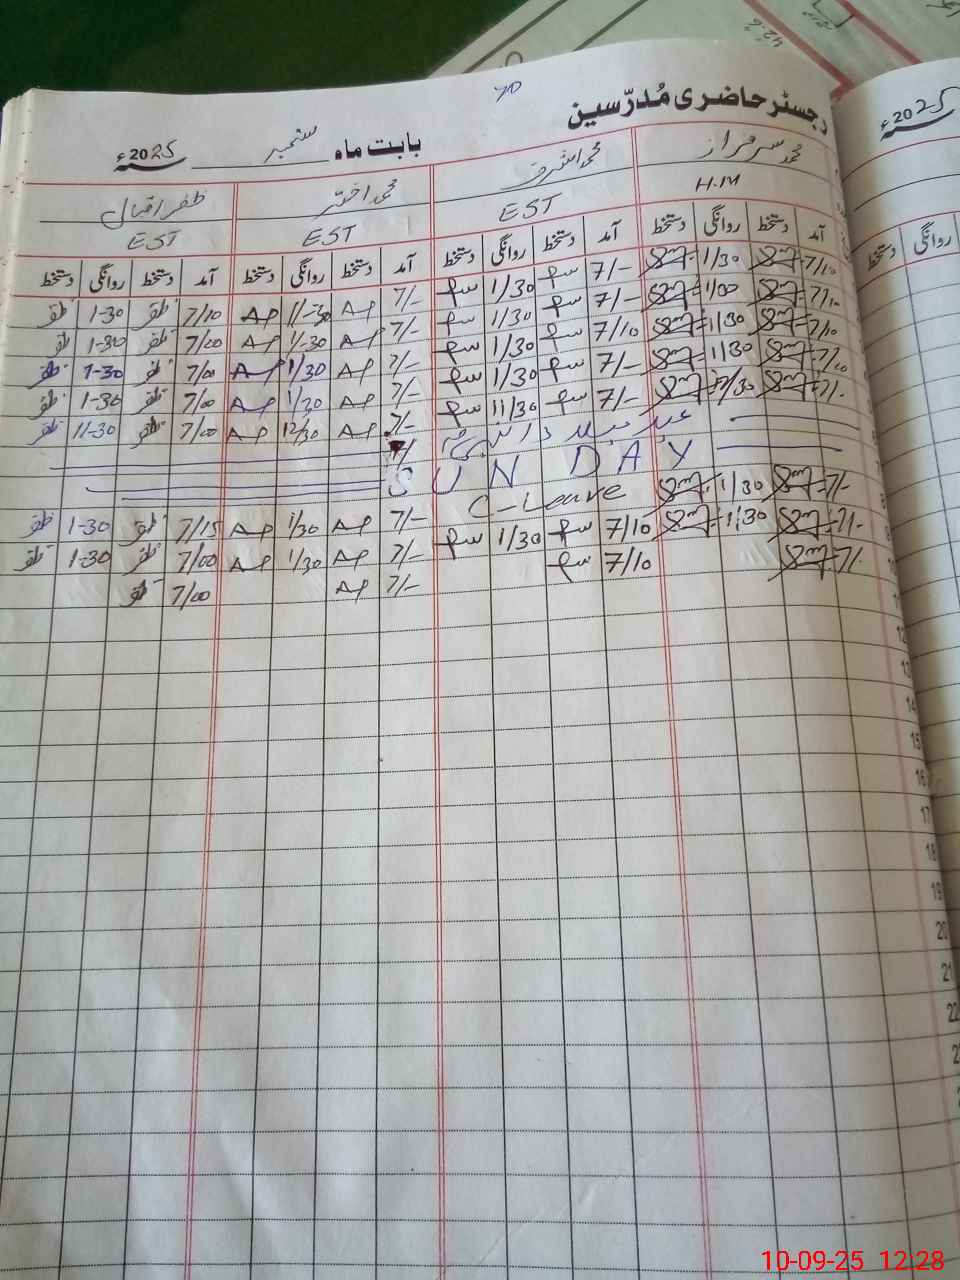 42.6
70
رجسٹر حاضری مُدرّسین
بابت ماہ ستمبر 2025ء
2025ء
محمد سرفراز محمد اشرف محمد اختر ظفر اقبال
H.M EST EST EST
آمد دستخط روانگی دستخط آمد دستخط روانگی دستخط آمد دستخط روانگی دستخط آمد دستخط روانگی دستخط
روانگی دستخط
7/10 1/30 7/- 1/30 7/- AP 1/-30 AP 7/10 ظفر 1-30 ظفر
7/10 1/00 7/- 1/30 7/- AP 1/-30 AP 7/00 ظفر 1-30 ظفر
7/10 1/30 7/10 1/30 7/- AP 1/30 AP 7/00 ظفر 1-30 ظفر
7/10 1/30 7/- 1/30 7/- AP 1/30 AP 7/00 ظفر 1-30 ظفر
7/- 7/- 11/30 7/- AP 12/30 AP 7/00 ظفر 11-30 ظفر
عید میلاد النبیؐ
SUNDAY
7/- 1/30 C-Leave 7/- AP 1/30 AP 7/15 ظفر 1-30 ظفر
7/- 1/30 7/10 1/30 7/- AP 1/30 AP 7/00 ظفر 1-30 ظفر
7/- 7/10 7/- AP 7/00 ظفر
12
13
14
15
16
17
18
19
20
21
22
10-09-25 12:28